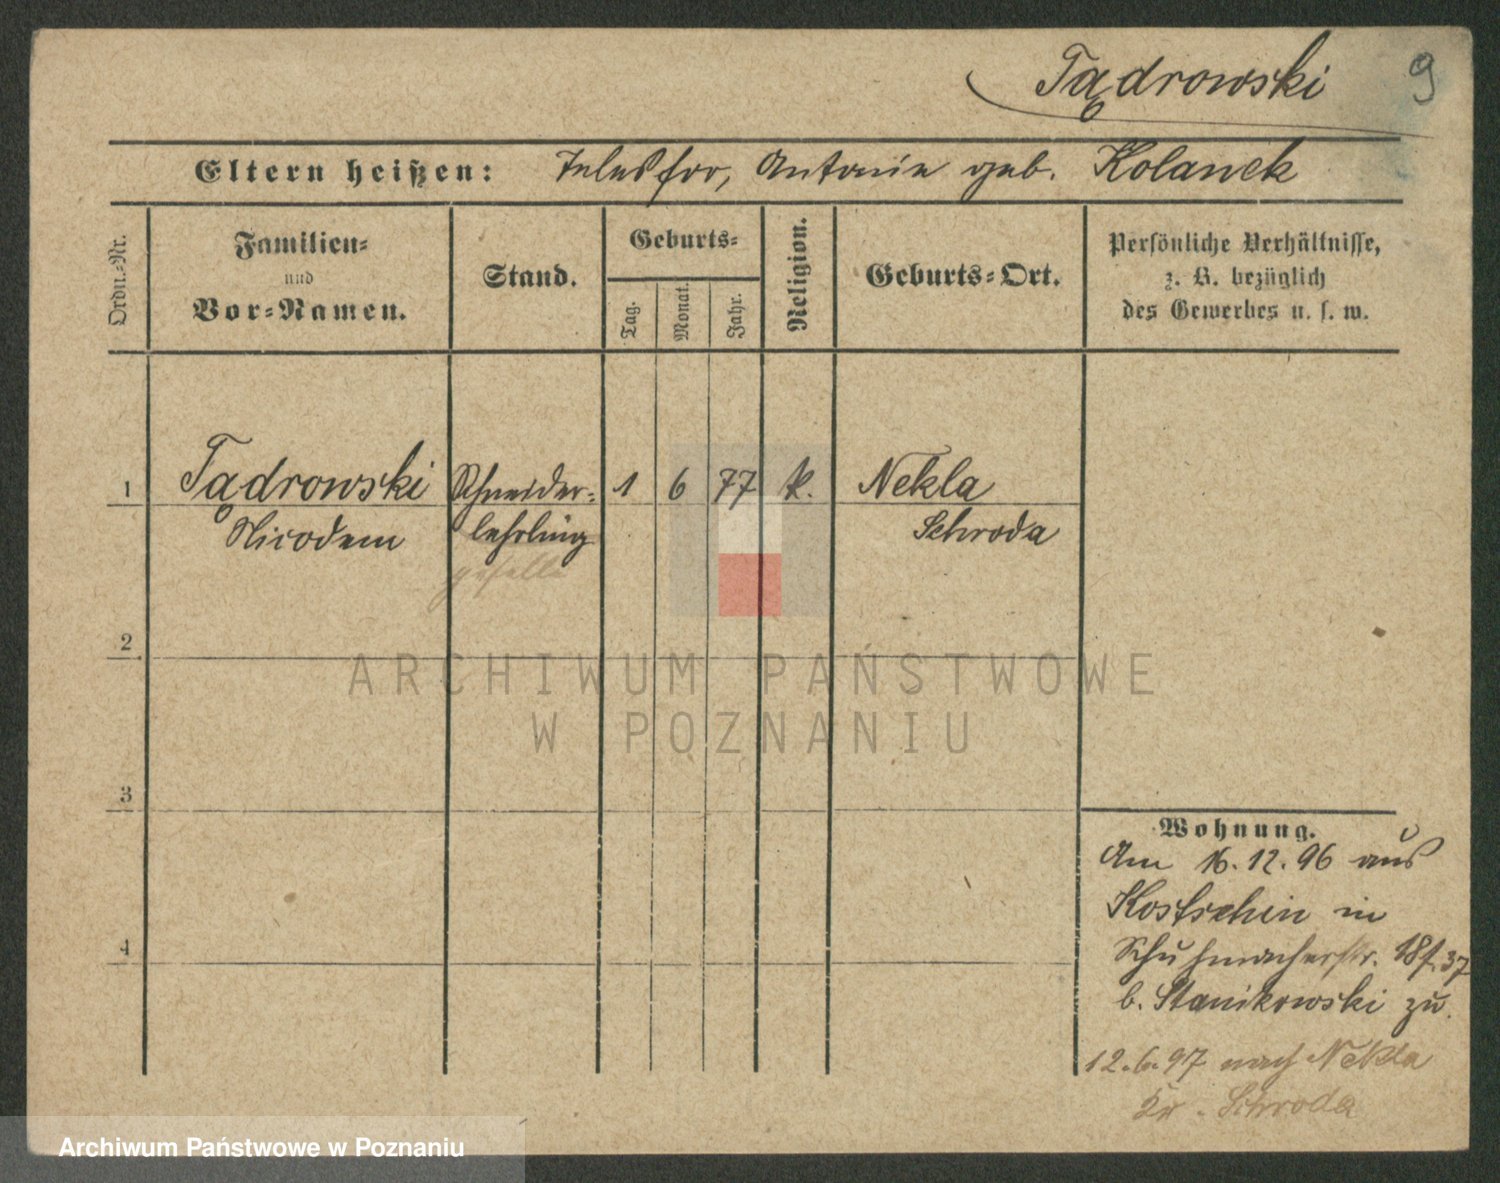 Tądrowski 9
Eltern heißen: Telesfor, Antonie geb. Kolanek
Ordn.=Nr.
Familien=
und
Vor=Namen.
Stand.
Geburts=
Tag.
Monat.
Jahr.
Religion.
Geburts=Ort.
Persönliche Verhältnisse,
z. B. bezüglich
des Gewerbes u. s. w.
1 Tądrowski Schneider= 1 6 77 k. Nekla
Nicodem lehrling Schroda
geselle
2
3
4
Wohnung.
Am 16.12.96 aus
Kostschin in
Schuhmacherstr. 18 f. 37
b. Stanikowski zu.
12.6.97 nach Nekla
Kr. Schroda
ARCHIWUM PAŃSTWOWE
W POZNANIU
Archiwum Państwowe w Poznaniu